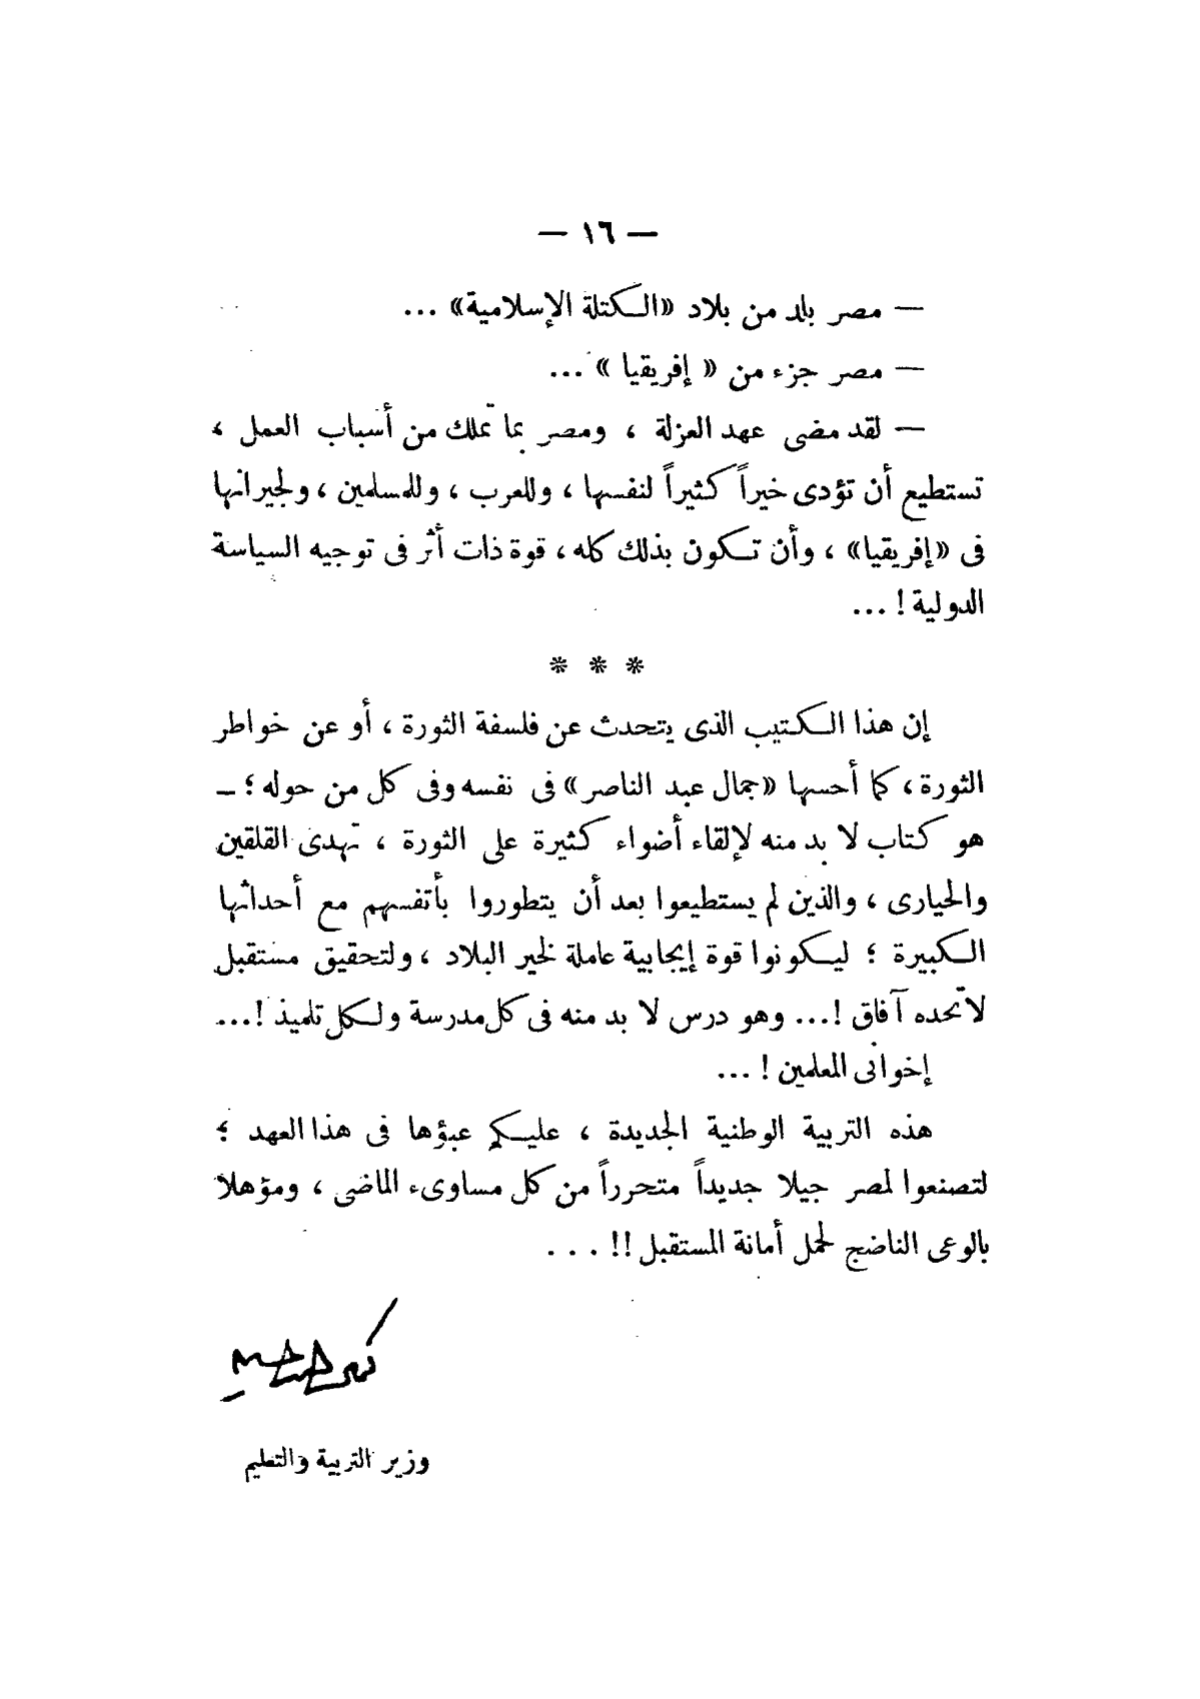 — ١٦ —
— مصر بلد من بلاد «الكتلة الإسلامية» ...
— مصر جزء من « إفريقيا » ...
— لقد مضى عهد العزلة ، ومصر بما تملك من أسباب العمل ،
تستطيع أن تؤدى خيراً كثيراً لنفسها ، وللعرب ، وللمسلمين ، ولجيرانها
فى «إفريقيا» ، وأن تكون بذلك كله ، قوة ذات أثر فى توجيه السياسة
الدولية ! ...
* * *
إن هذا الكتيب الذى يتحدث عن فلسفة الثورة ، أو عن خواطر
الثورة ، كما أحسها «جمال عبد الناصر» فى نفسه وفى كل من حوله ؛ —
هو كتاب لا بد منه لإلقاء أضواء كثيرة على الثورة ، تهدى القلقين
والحيارى ، والذين لم يستطيعوا بعد أن يتطوروا بأنفسهم مع أحداثها
الكبيرة ؛ ليكونوا قوة إيجابية عاملة لخير البلاد ، ولتحقيق مستقبل
لا تحده آفاق ! ... وهو درس لا بد منه فى كل مدرسة ولكل تلميذ ! ...
إخوانى المعلمين ! ...
هذه التربية الوطنية الجديدة ، عليكم عبؤها فى هذا العهد ؛
لتصنعوا لمصر جيلا جديداً متحرراً من كل مساوىء الماضى ، ومؤهلا
بالوعى الناضج لحمل أمانة المستقبل !! . . .
وزير التربية والتعليم